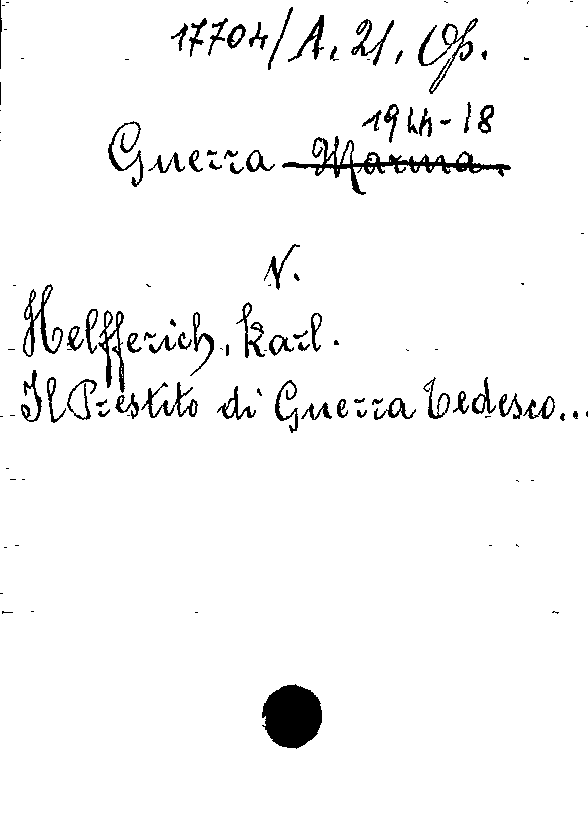 17704/A. 21, Op.
1914-18
Guerra Marina.
V.
Helfferich, Karl.
Il Prestito di Guerra Tedesco...